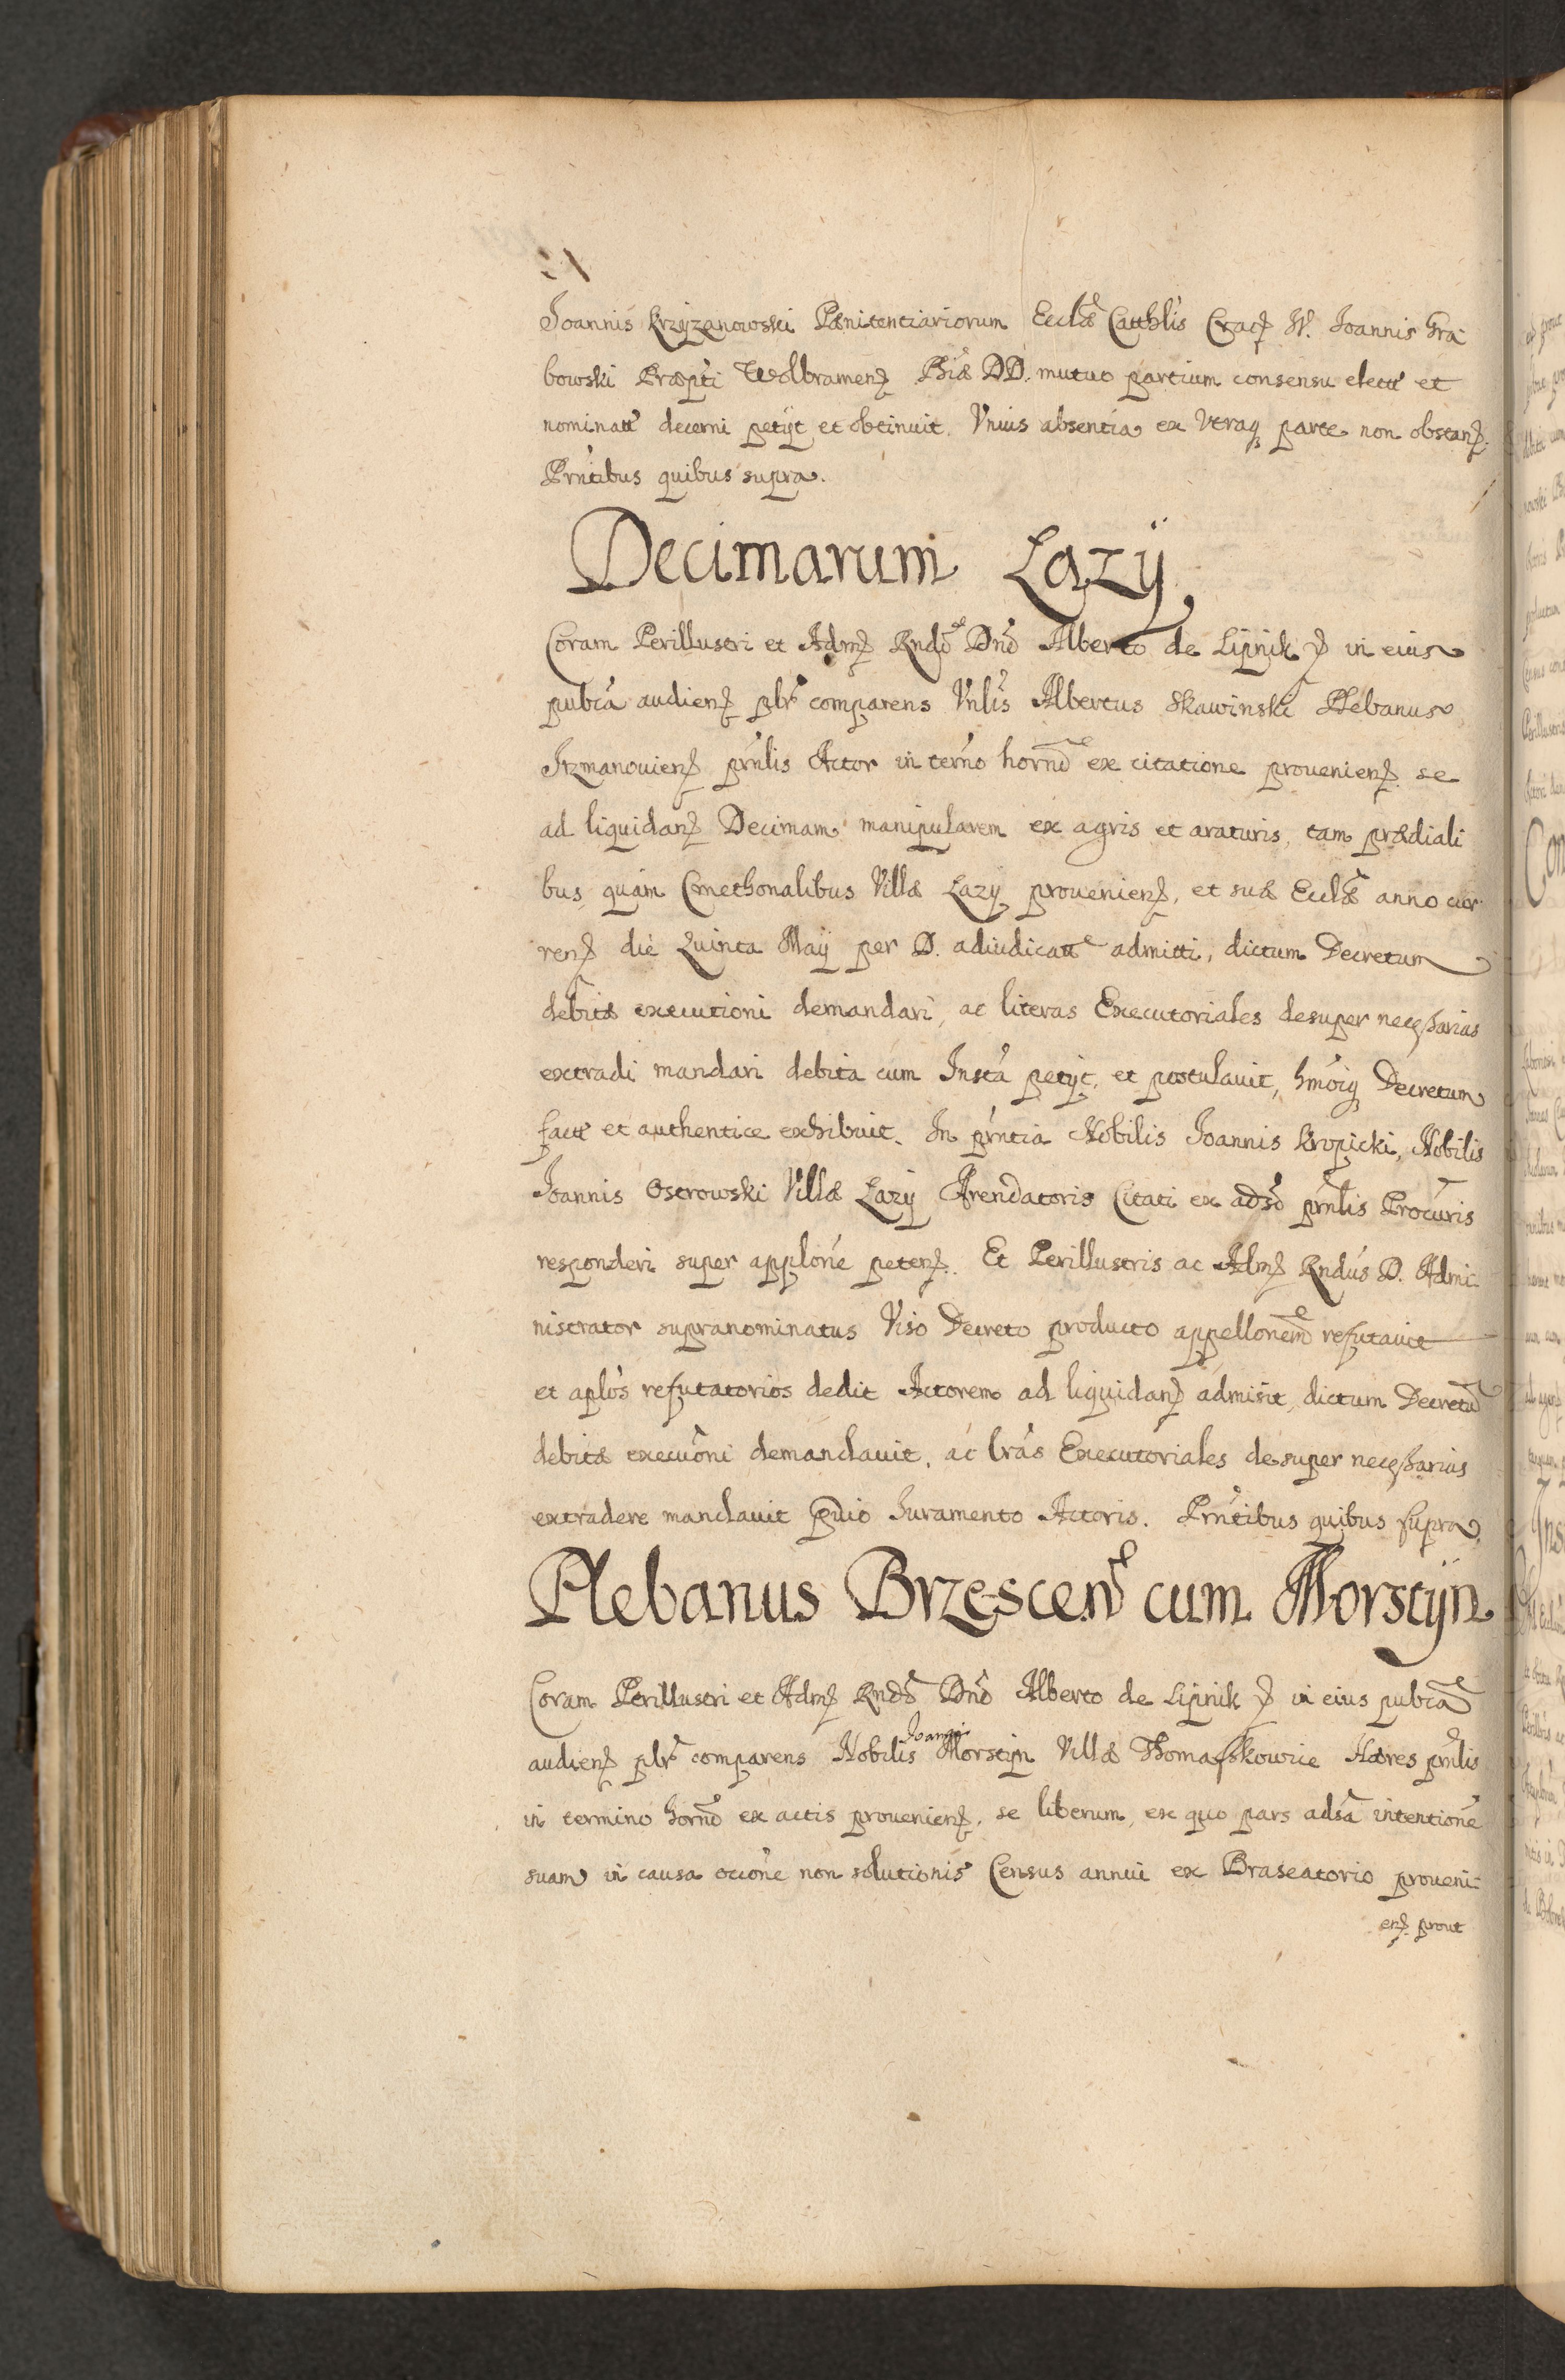 Joannis Krzyzanowski Pænitentiariorum Ecclæ Catthlis Crac. W. Joannis Gra-
bowski Præpti Wolbramen. Phiæ DD. mutuo partium consensu elect et
nominatt decerni petijt et obtinuit. Vnius absentia ex vtraq parte non obstan.
Prntibus quibus supra.
Decimarum Lazÿ
Coram Perillustri et Adm. Rndo Dno Alberto de Lipnik in eius
pubca audien. plr comparens Vnlis Albertus Skawinski Plebanus
Irzmanouien. prnlis Actor in terno hornd ex citatione prouenien. se
ad liquidan. Decimam manipularem ex agris et araturis, tam prædiali
bus, quam Cmethonalibus Villæ Lazÿ prouenien., et suæ Ecclæ anno cur-
ren. die Quinta Maÿ per D. adiudicatt admitti, dictum Decretum
debitæ executioni demandari, ac literas Executoriales desuper necessarias
extradi mandari debita cum Insta petijt, et postulauit, hmoiq Decretum
fact et authentice exhibuit. In prntia Nobilis Joannis Kropicki, Nobilis
Joannis Ostrowski Villæ Lazÿ Arendatoris Citati ex adso prnlis Procuris
responderi super applone peten. Et Perillustris ac Adm. Rndus D. Admi-
nistrator supranominatus Viso Decreto producto appellonem refutauit
et aplos refutatorios dedit Actorem ad liquidan. admisit, dictum Decretu
debitæ execuoni demandauit, ac lras Executoriales desuper necessarias
extradere mandauit puio Juramento Actoris. Prntibus quibus supra.
Plebanus Brzescen cum Morstÿn
Coram Perillustri et Adm. Rndo Dno Alberto de Lipnik in eius pubca
audien. plr comparens Nobilis Joannes Morstÿn Villæ Thomaszkowice Hæres prnlis
in termino hornd ex actis prouenien. se liberum, ex quo pars adsa intentione
suam in causa occone non solutionis Census annui ex Braseatorio proueni-
en. prout